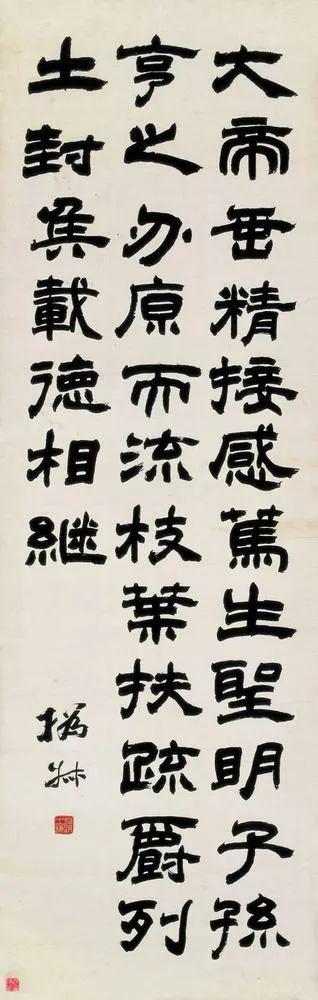 大帝垂精接感篤生聖明子孫
亨之分原而流枝葉扶疏爵列
土封矦載德相継
撝叔